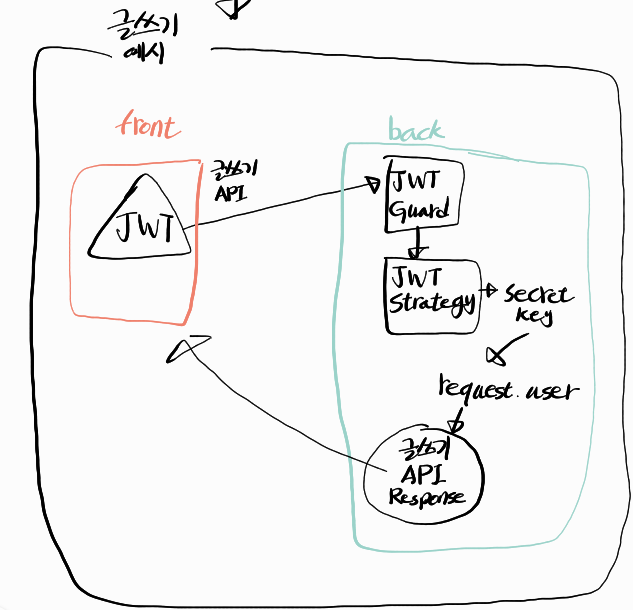 글쓰기
예시
front
back
글쓰기
API
JWT
JWT
Guard
JWT
Strategy
secret
key
request.user
글쓰기
API
Response